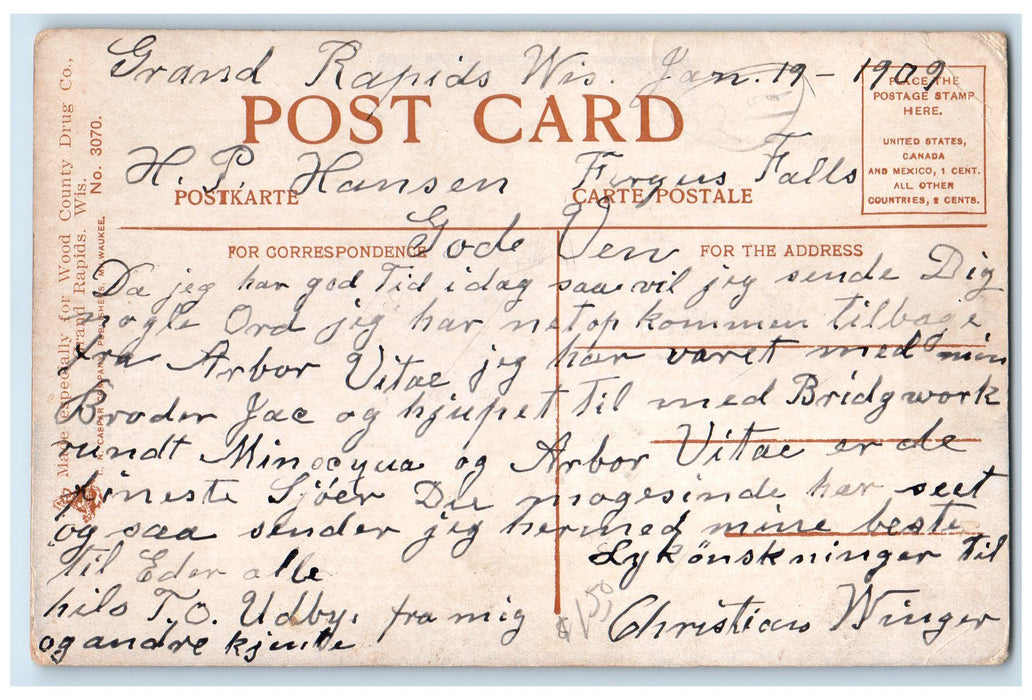 Grand Rapids Wis. Jan. 19 - 1909
POST CARD
H. P. Hansen Fergus Falls
POSTKARTE
CARTE POSTALE
PLACE THE
POSTAGE STAMP
HERE.
UNITED STATES,
CANADA
AND MEXICO, 1 CENT.
ALL OTHER
COUNTRIES, 2 CENTS.
Gode Ven
FOR CORRESPONDENCE
FOR THE ADDRESS
Da jeg har god Tid idag saa vil jeg sende Dig
nogle Ord jeg har netop kommen tilbage
fra Arbor Vitae jeg har varet med min
Broder Jac og hjupet til med Bridgwork
rundt Minocqua og Arbor Vitae er de
fineste Sjöer Du nogesinde har seet
og saa sender jeg hermed mine beste
Lykönskninger til
til Eder alle
hils T. O. Udby. fra mig
og andre kjente
Christian Winger
$1 50
Made Especially for Wood County Drug Co.,
Grand Rapids. Wis.
No. 3070.
E. C. KROPP